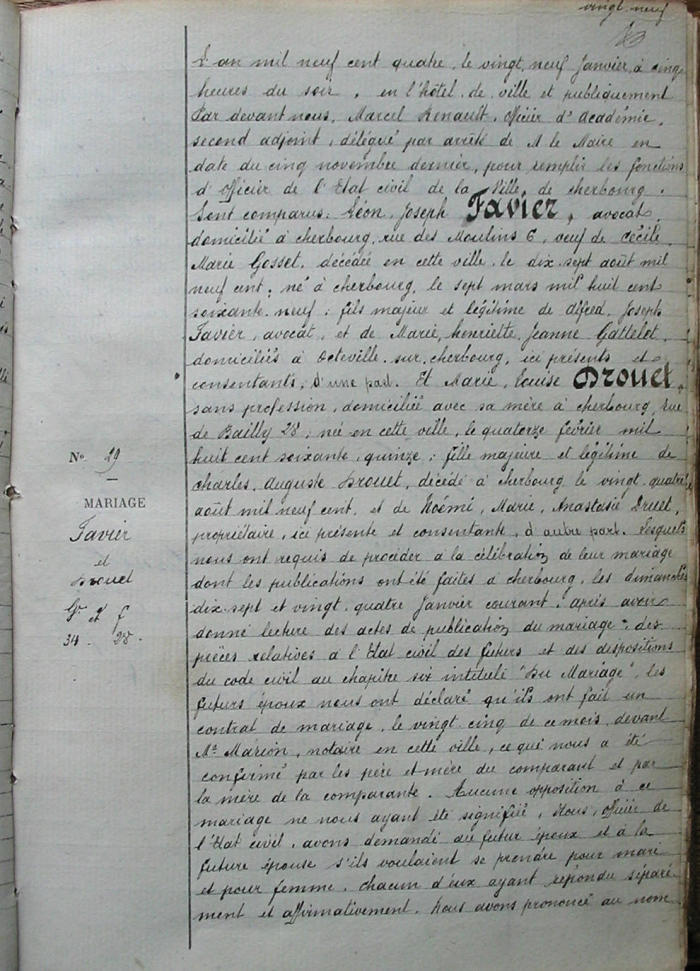 vingt-neuf
L'an mil neuf cent quatre, le vingt-neuf Janvier, à cinq
heures du soir, en l'hôtel de ville et publiquement
Par devant nous, Marcel Renault, officier d'Académie,
second adjoint, délégué par arrêté de M le Maire en
date du cinq novembre dernier, pour remplir les fonctions
d'Officier de l'Etat civil de la Ville de cherbourg.
Sont comparus: Léon, Joseph Favier, avocat,
domicilié à cherbourg, rue des Moulins 6, veuf de Cécile
Marie Gosset, décédée en cette ville, le dix-sept août mil
neuf cent; né à cherbourg, le sept mars mil huit cent
soixante-neuf; fils majeur et légitime de Alfred, Joseph
Favier, avocat, et de Marie, henriette, Jeanne Gattelet,
domiciliés à Octeville-sur-cherbourg, ici présents et
consentants, d'une part. Et Marie, Louise Drouet,
sans profession, domiciliée avec sa mère à cherbourg, rue
de Bailly 28; née en cette ville, le quatorze février mil
huit cent soixante-quinze; fille majeure et légitime de
charles, Auguste Drouet, décédé à cherbourg le vingt-quatre
août mil neuf cent, et de Noémi, Marie, Anastasie Druet,
propriétaire, ici présente et consentante, d'autre part. Lesquels
nous ont requis de procéder à la célébration de leur mariage
dont les publications ont été faites à cherbourg, les dimanches
dix-sept et vingt-quatre Janvier courant. après avoir
donné lecture des actes de publication du mariage, des
pièces relatives à l'Etat civil des futurs et des dispositions
du code civil au chapitre six intitulé "Du Mariage", les
futurs époux nous ont déclaré qu'ils ont fait un
contrat de mariage, le vingt-cinq de ce mois, devant
Me Marion, notaire en cette ville, ce que nous a été
confirmé par les père et mère du comparant et par
la mère de la comparante. Aucune opposition à ce
mariage ne nous ayant été signifiée, Nous, officier de
l'Etat civil, avons demandé au futur époux et à la
future épouse s'ils voulaient se prendre pour mari
et pour femme. chacun d'eux ayant répondu séparé-
ment et affirmativement. Nous avons prononcé au nom
No 29
MARIAGE
Favier
et
Drouet
et
34 28.